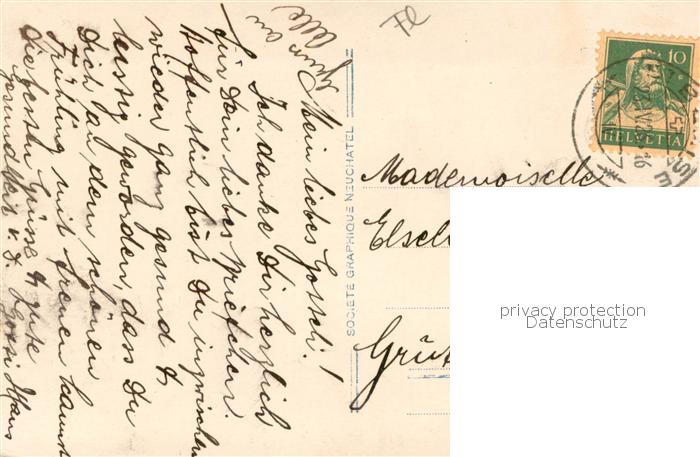 Mein liebes Gotteli!
Ich danke Dir herzlich
für Dein liebes Briefchen.
Hoffentlich bist Du inzwischen
wieder ganz gesund &
lustig geworden, dass Du
Dich an dem schönen
Frühling mit freuen kannst
Die besten Grüsse & gute
Gesundheit v. D. Hans
an Alle
SOCIÉTÉ GRAPHIQUE NEUCHATEL
Fl
10
HELVETIA
Mademoiselle
Elsel
Grüt
privacy protection
Datenschutz